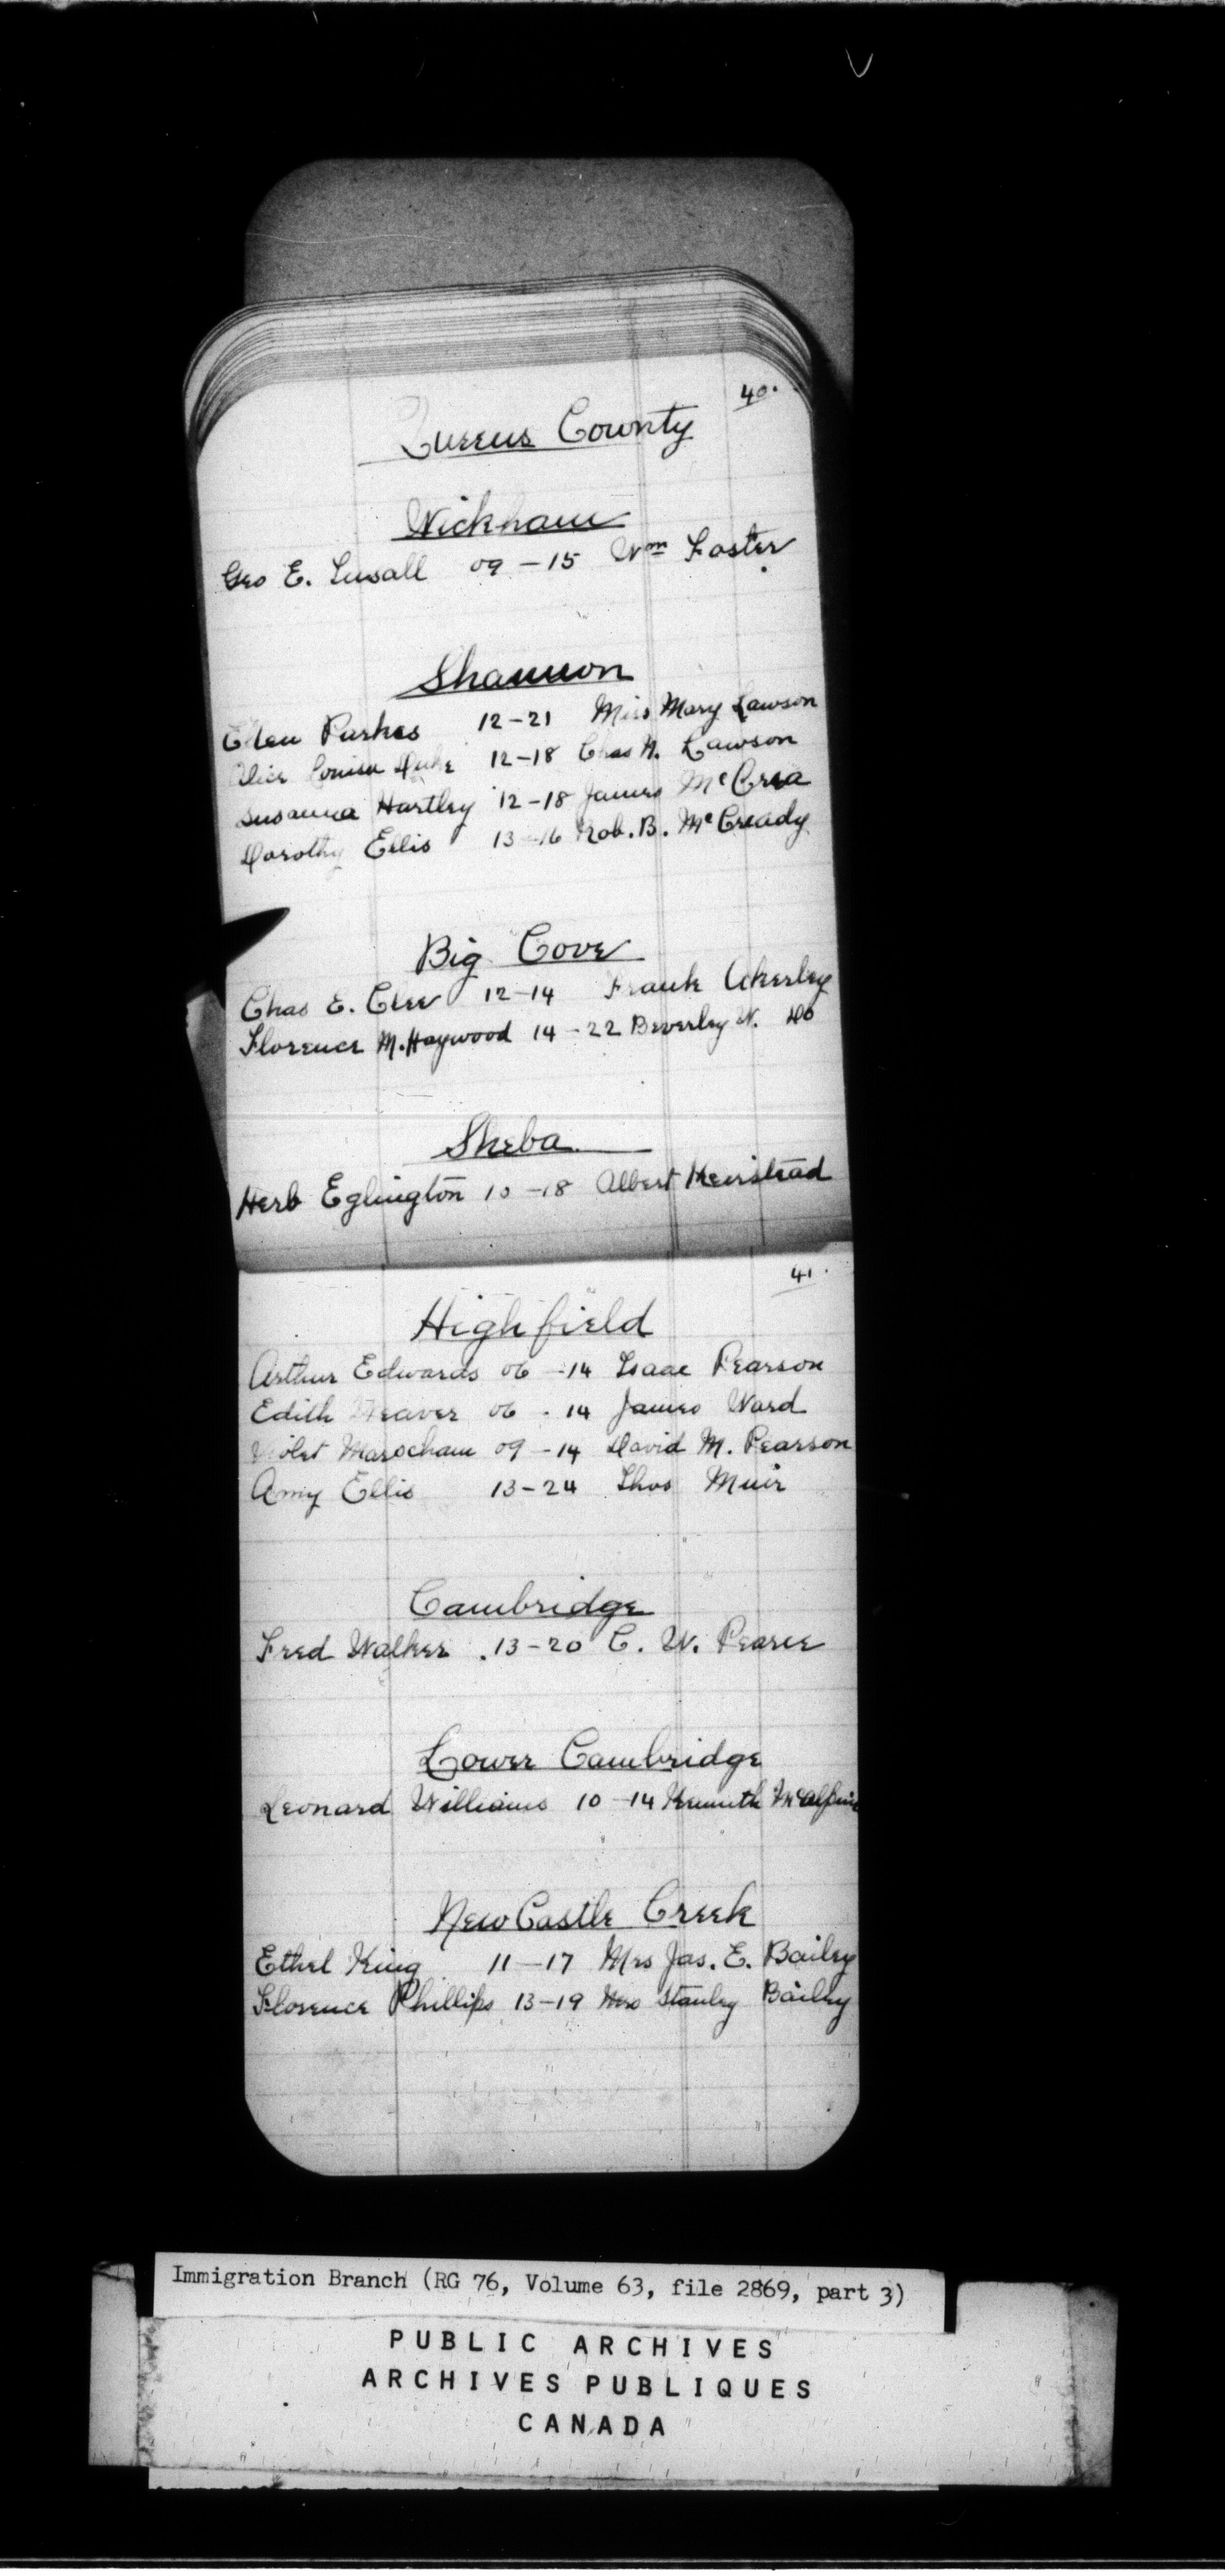 40.
Queens County
Wickham
Geo E. Lusall 09 - 15 Wm Foster
Shannon
Ellen Parkes 12 - 21 Miss Mary Lawson
Alice Louisa Duke 12 - 18 Chas H. Lawson
Susanna Hartley 12 - 18 James McCrea
Dorothy Ellis 13 - 16 Rob. B. McCready
Big Cove
Chas E. Clee 12 - 14 Frank Akerley
Florence M. Haywood 14 - 22 Beverley N. Do
Sheba
Herb Eglington 10 - 18 Albert Keirstead
41.
Highfield
Arthur Edwards 06 - 14 Isaac Pearson
Edith Weaver 06 - 14 James Ward
Violet Marocham 09 - 14 David M. Pearson
Amy Ellis 13 - 24 Thos Muir
Cambridge
Fred Walker 13 - 20 C. W. Pearce
Lower Cambridge
Leonard Williams 10 - 14 Kenneth McAlpine
New Castle Creek
Ethel King 11 - 17 Mrs Jas. E. Bailey
Florence Phillips 13 - 19 Stanley Bailey
Immigration Branch (RG 76, Volume 63, file 2869, part 3)
PUBLIC ARCHIVES
ARCHIVES PUBLIQUES
CANADA